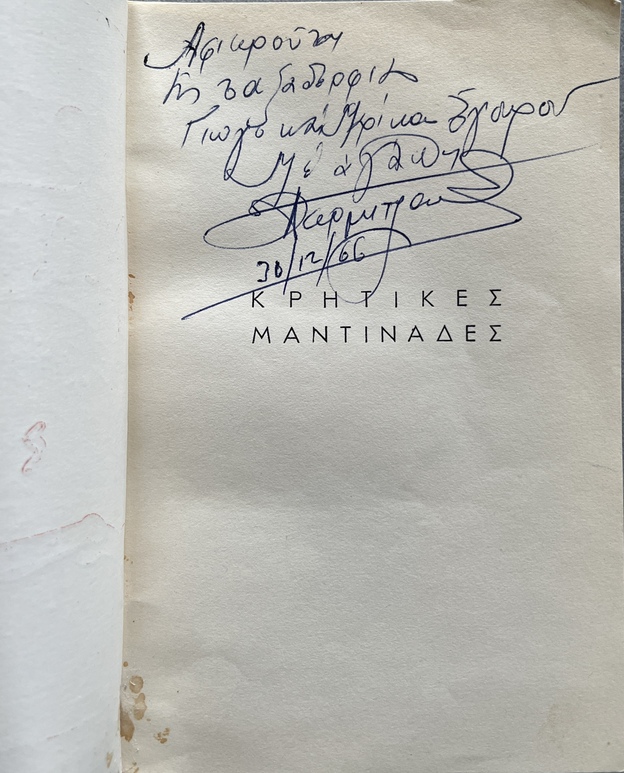 Αφιερούται
στα ξαδέρφια
Γιώργο και Μαρίκα Σγουρού
Με αγάπη
30/12/66
ΚΡΗΤΙΚΕΣ
ΜΑΝΤΙΝΑΔΕΣ